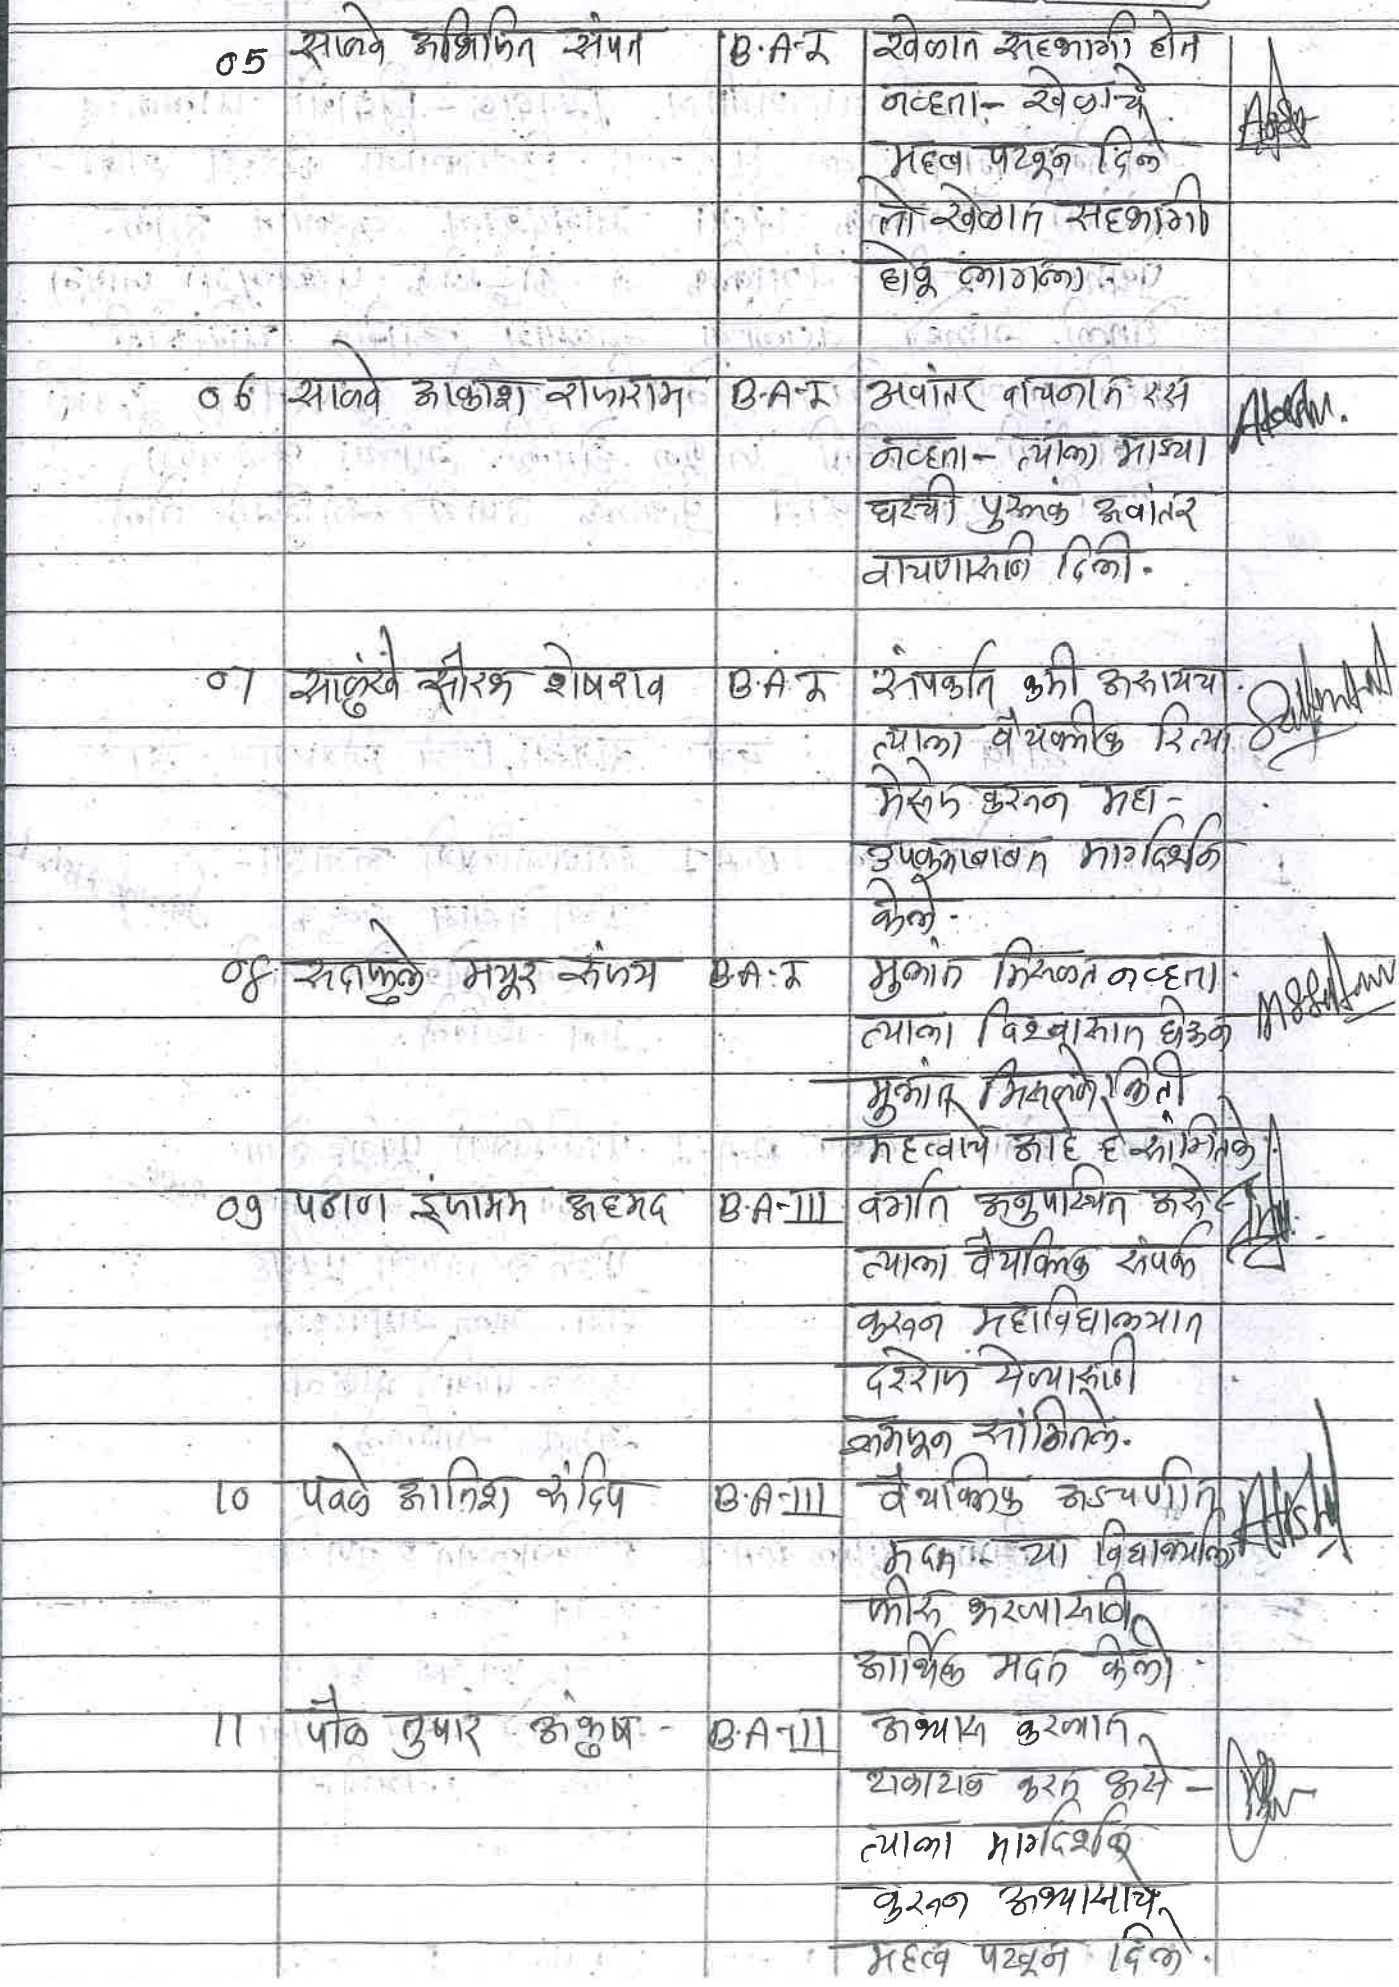 05 साळवे अभिजित संपत B.A-I खेळात सहभागी होत
नव्हता - खेळाचे
महत्व पटवून दिले
तो खेळात सहभागी
होवू लागला.
06 साळवे आकाश राजाराम B.A-I अवांतर वाचनात रस
नव्हता - त्याला माझ्या
घरची पुस्तकं अवांतर
वाचणासाठी दिली.
07 साळुंखे सौरभ शेषराव B.A-I संपर्कात कमी असायचा.
त्याला वैयक्तीक रित्या
मेसेज करून महा-
उपक्रमाबाबत मार्गदर्शन
केले.
08 सदाफुले मयूर संजय B.A-I मुलांत मिसळत नव्हता.
त्याला विश्वासात घेऊन
मुलांत मिसळणे किती
महत्वाचे आहे हे सांगितले.
09 पठाण इंजामम अहमद B.A-III वर्गात अनुपस्थित असे
त्याला वैयक्तिक संपर्क
करून महाविद्यालयात
दररोज येण्यासाठी
समजून सांगितले.
10 पवळे आतिश संदिप B.A-III वैयक्तिक अडचणीत
मदत - या विद्यार्थ्याला
फीस भरण्यासाठी
आर्थिक मदत केली.
11 पौळ तुषार अंकुष - B.A-III अभ्यास करण्यात
टाळाटाळ करत असे -
त्याला मार्गदर्शन
करून अभ्यासाचे
महत्व पटवून दिले.